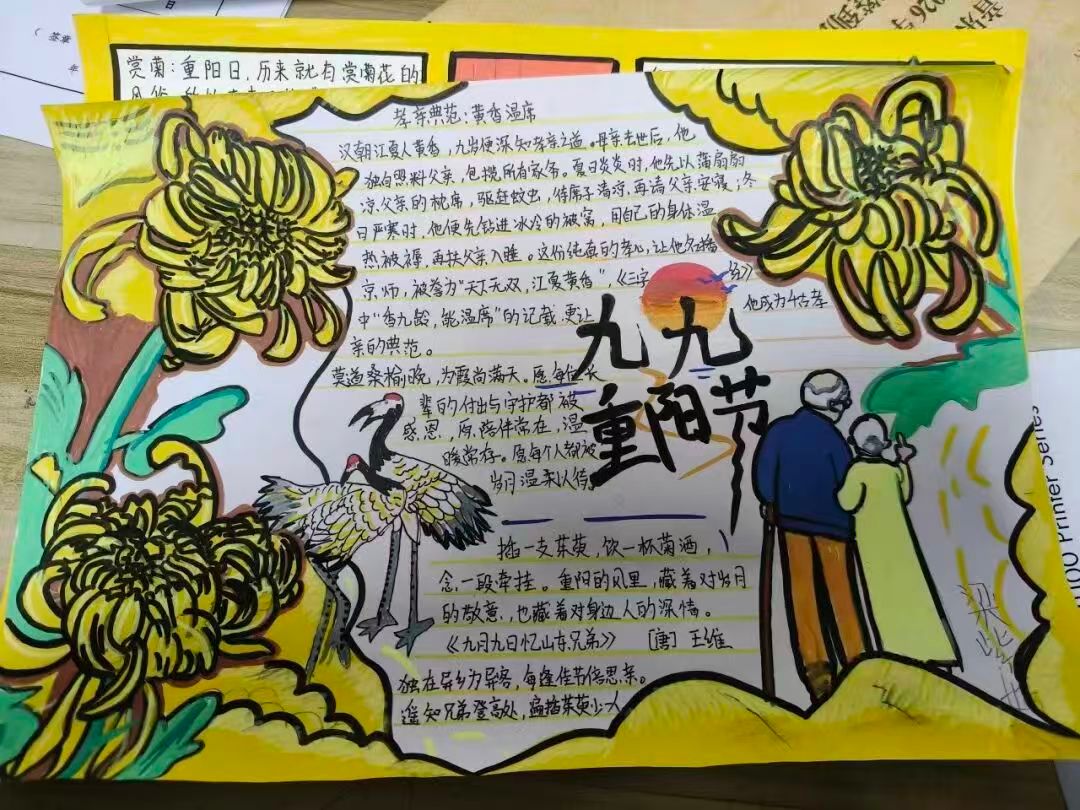 赏菊：重阳日，历来就有赏菊花的
孝亲典范：黄香温席
汉朝江夏人黄香，九岁便深知孝亲之道。母亲去世后，他
独自照料父亲，包揽所有家务。夏日炎炎时，他先以蒲扇扇
凉父亲的枕席，驱赶蚊虫，待席子清凉，再请父亲安寝；冬
日严寒时，他便先钻进冰冷的被窝，用自己的身体温
热被褥，再扶父亲入睡。这份纯真的孝心，让他名播
京师，被誉为“天下无双，江夏黄香”，《三字经》
中“香九龄，能温席”的记载，更让他成为千古孝
亲的典范。
莫道桑榆晚，为霞尚满天。愿每位长
辈的付出与守护都被
感恩，愿陪伴常在，温
暖常存。愿每个人都被
岁月温柔以待。
九九
重阳节
插一支茱萸，饮一杯菊酒，
念一段牵挂。重阳的风里，藏着对岁月
的敬意，也藏着对身边人的深情。
《九月九日忆山东兄弟》 [唐] 王维
独在异乡为异客，每逢佳节倍思亲。
遥知兄弟登高处，遍插茱萸少一人
梁
100 Printer Series
2026